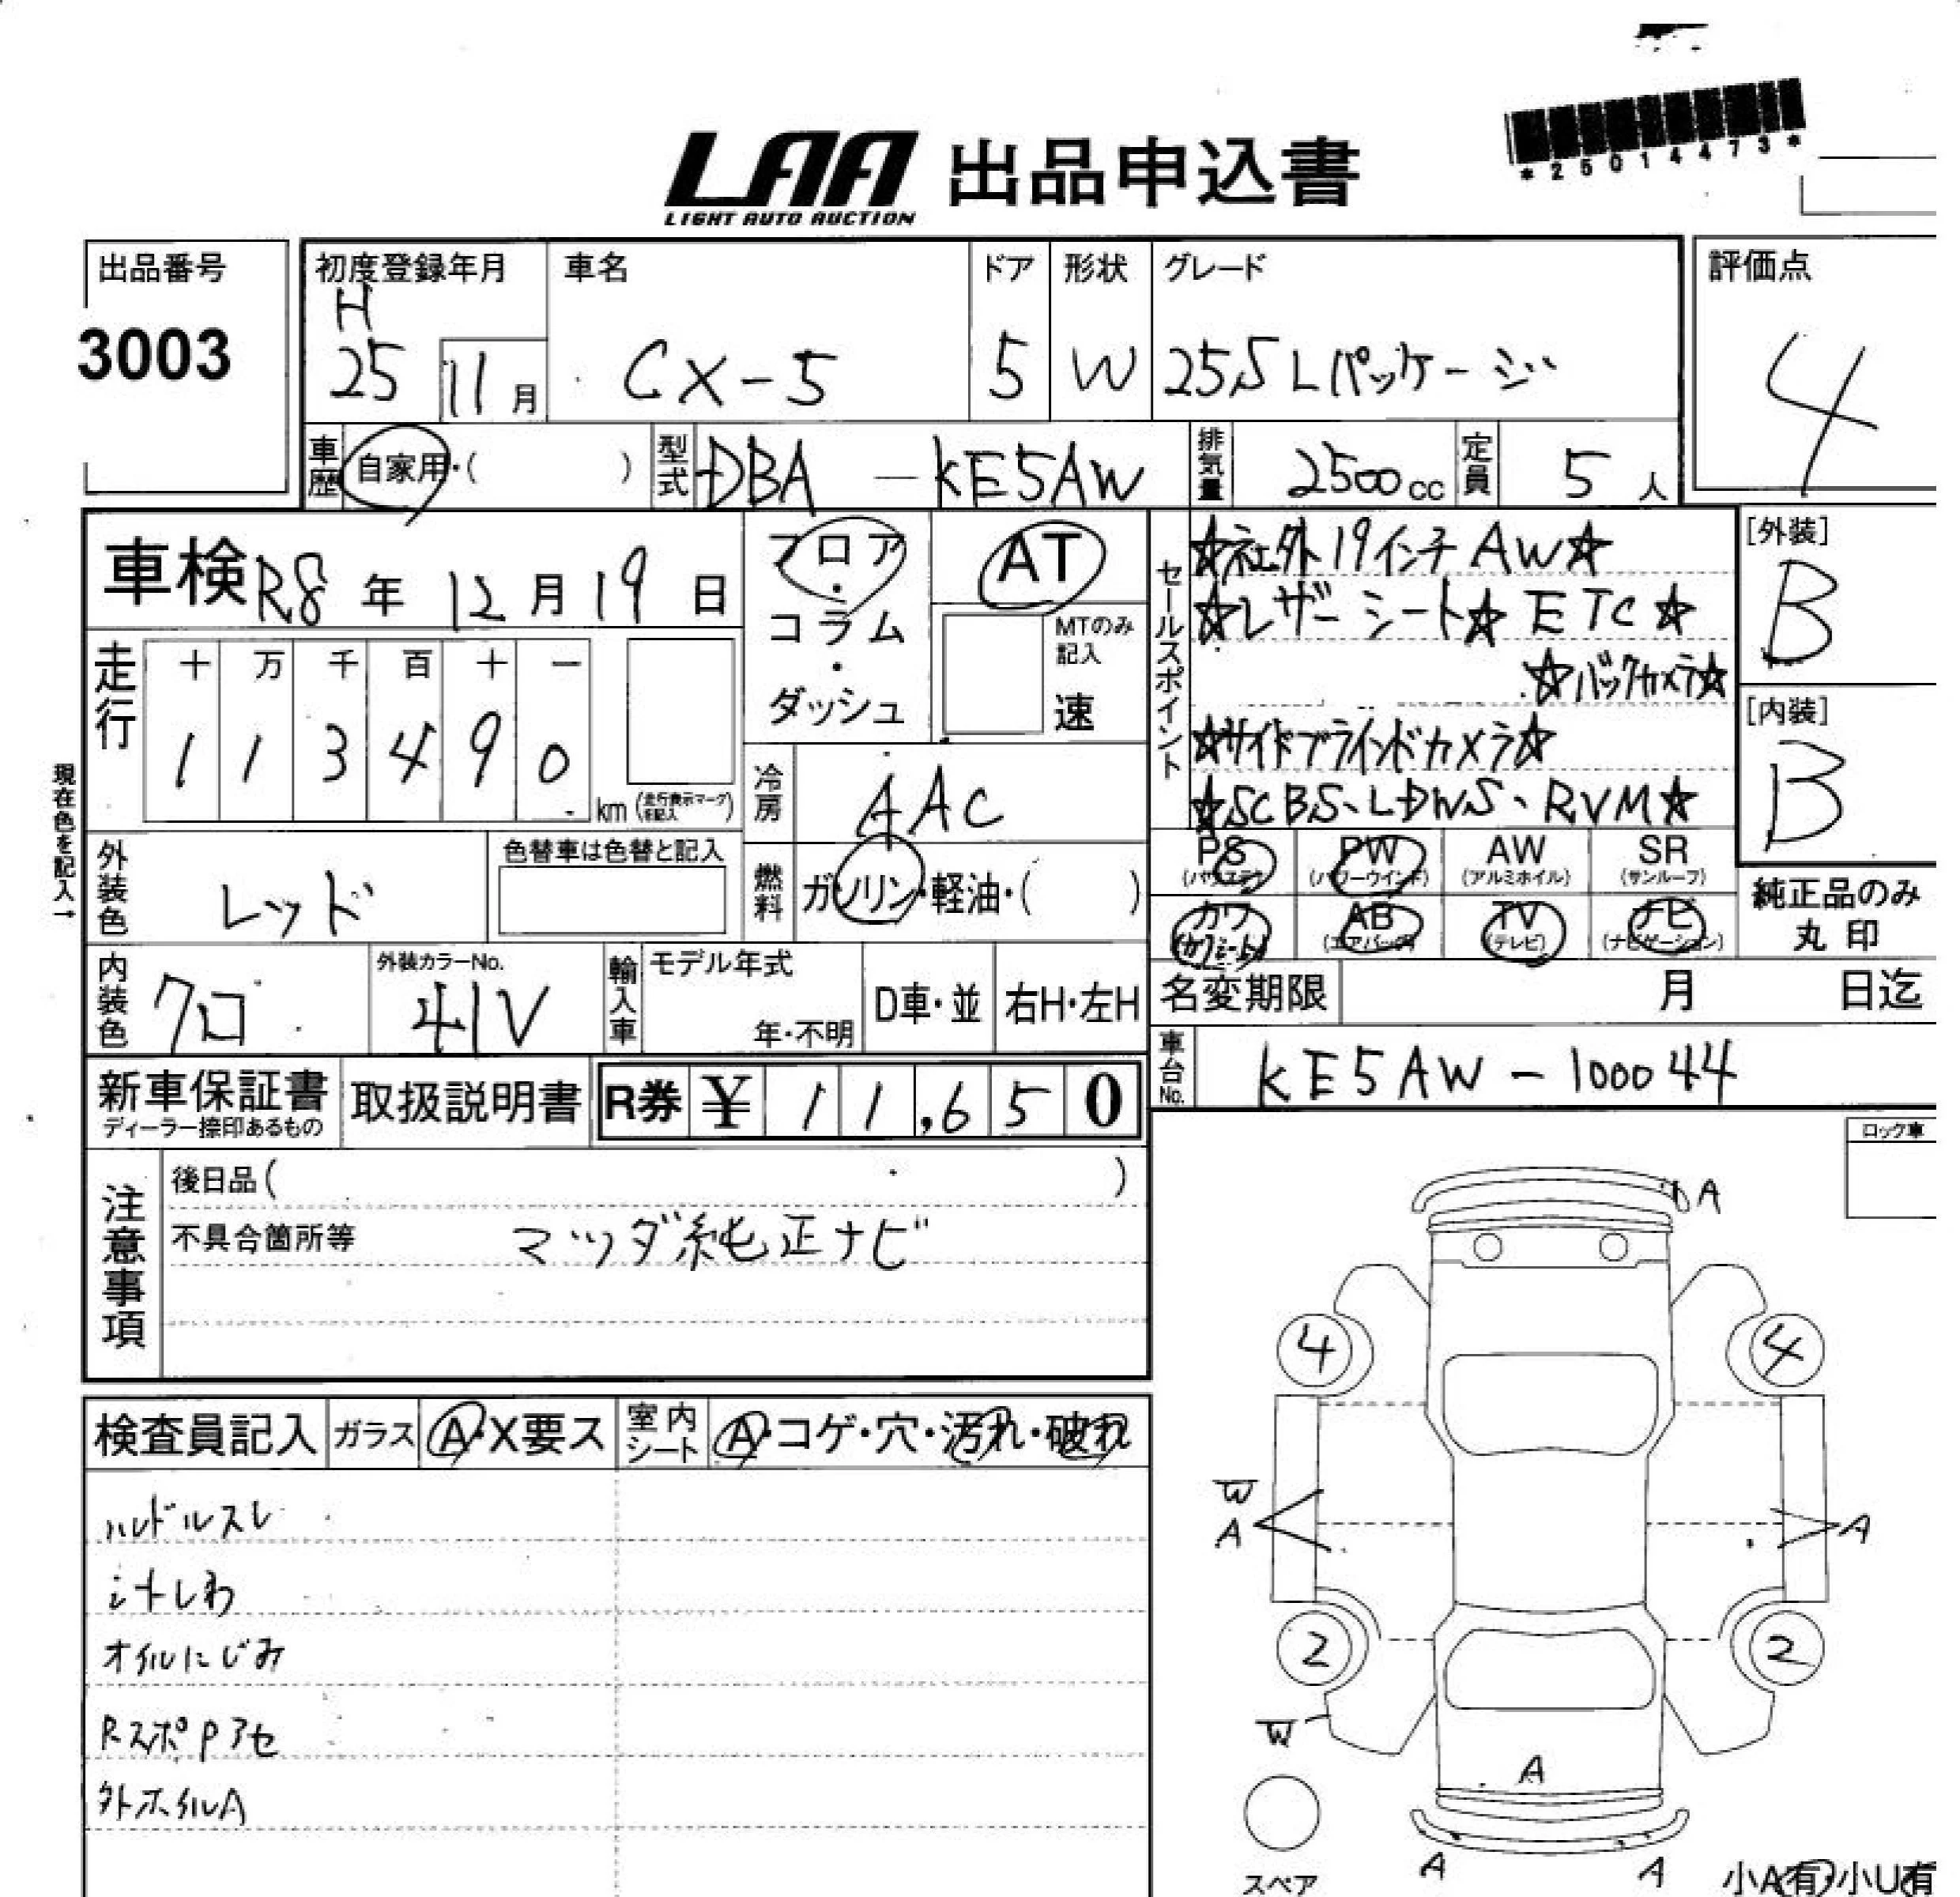 *25014473*
LAA 出品申込書
LIGHT AUTO AUCTION
出品番号
3003
初度登録年月
H
25 11月
車名
CX-5
ドア
5
形状
W
グレード
25S Lパッケージ
評価点
4
車歴 自家用・( )
型式 DBA - KE5AW
排気量 2500cc
定員 5人
車検 R8年12月19日
フロア・コラム・ダッシュ
AT
MTのみ記入
速
セールスポイント
☆社外19インチAW☆
☆レザーシート☆ETC☆
☆バックカメラ☆
☆サイドブラインドカメラ☆
☆SCBS、LDWS、RVM☆
[外装]
B
[内装]
B
走行
十 万 千 百 十 一
1 1 3 4 9 0 km
現在色を記入→
冷房 AAC
外装色 レッド
色替車は色替と記入
燃料 ガソリン・軽油・( )
PS (パワステ)
PW (パワーウインド)
AW (アルミホイル)
SR (サンルーフ)
カワ (カワシート)
AB (エアバッグ)
TV (テレビ)
ナビ (ナビゲーション)
純正品のみ
丸印
内装色 クロ
外装カラーNo.
41V
輸入車
モデル年式
年・不明
D車・並
右H・左H
名変期限 月 日迄
車台No. KE5AW-100044
新車保証書
ディーラー捺印あるもの
取扱説明書
R券 ¥ 11,650
注意事項
後日品( )
不具合箇所等 マツダ純正ナビ
ロック車
検査員記入
ガラス A・X要ス
室内シート A・コゲ・穴・汚れ・破れ
ハンドルスレ
シートしわ
オイルにじみ
RスポPアセ
外ホイルA
A
4 4
W
A
A
2 2
W
A
スペア
A A
小A有・小U有